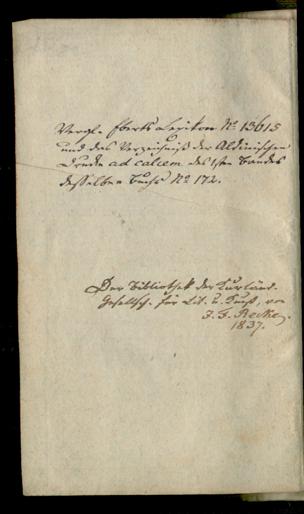 Vergl. Eberts Lexikon No 13615
und das Verzeichniß der Aldinischen
Drucke ad calcem des 1sten Bandes
desselben Buchs No 172.
Der Bibliothek der Kurländ.
Gesellsch. für Lit. u. Kunst, von
J. F. Recke.
1837.